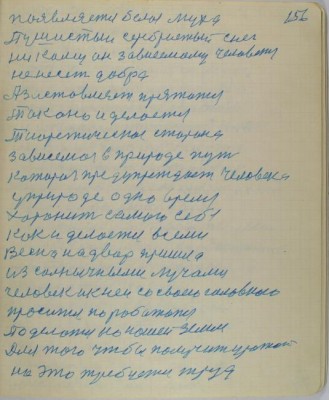 156
появляетя белая мука
Пушистый серебристый снег
ни кому он зависимому человеку
ненесет добра
А заставляет прятатя
Так оно и делаетя
Теоретическая старана
зависемая в природе пут
Которая предупреждает человека
у природе одно время
Хоронит самаго себя
Как и делаетя всеми
Весна надвар пришла
из солнычными лучами
человек кней со своею головною
просится поработати
По делати на нашей Земли
Для того чтобы получит урожай
на это требуетя труд